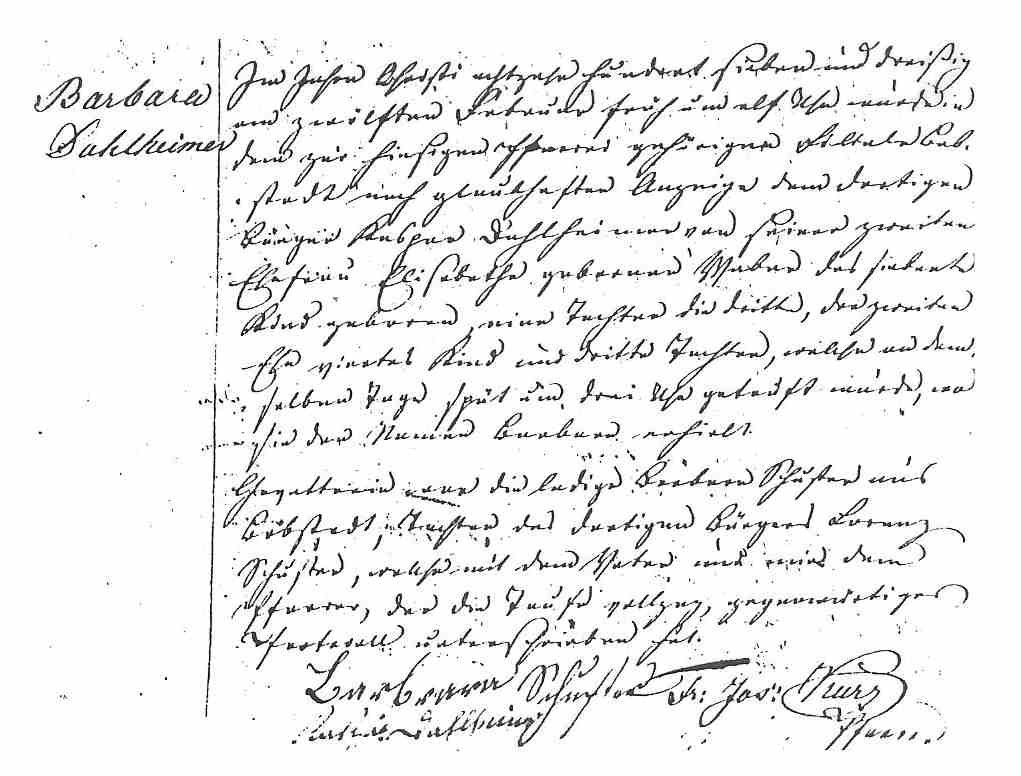 Barbara
Dahlheimer
Im Jahre Christi achtzehn hundert sieben und dreißig
am zwölften Februar früh um elf Uhr wurde in
dem zur hiesigen Pfarrei gehörigen Filiale Bob-
stadt nach glaubhafter Anzeige dem dortigen
Bürger Kaspar Dahlheimer von seiner zweiten
Ehefrau Elisabetha geborener Weber das siebente
Kind geboren, eine Tochter die dritte, der zweiten
Ehe viertes Kind und dritte Tochter, welche an dem-
selben Tage spät um drei Uhr getauft wurde, wo
sie den Namen Barbara erhielt.
Gevatterin war die ledige Barbara Schuster aus
Bobstadt, Tochter des dortigen Bürgers Lorenz
Schuster, welche mit dem Vater und mir dem
Pfarrer, der die Taufe vollzog, gegenwärtiges
Protocoll unterschrieben hat.
Barbara Schuster Fr: Jos: Kurz
Dahlheimer Pfarrer.